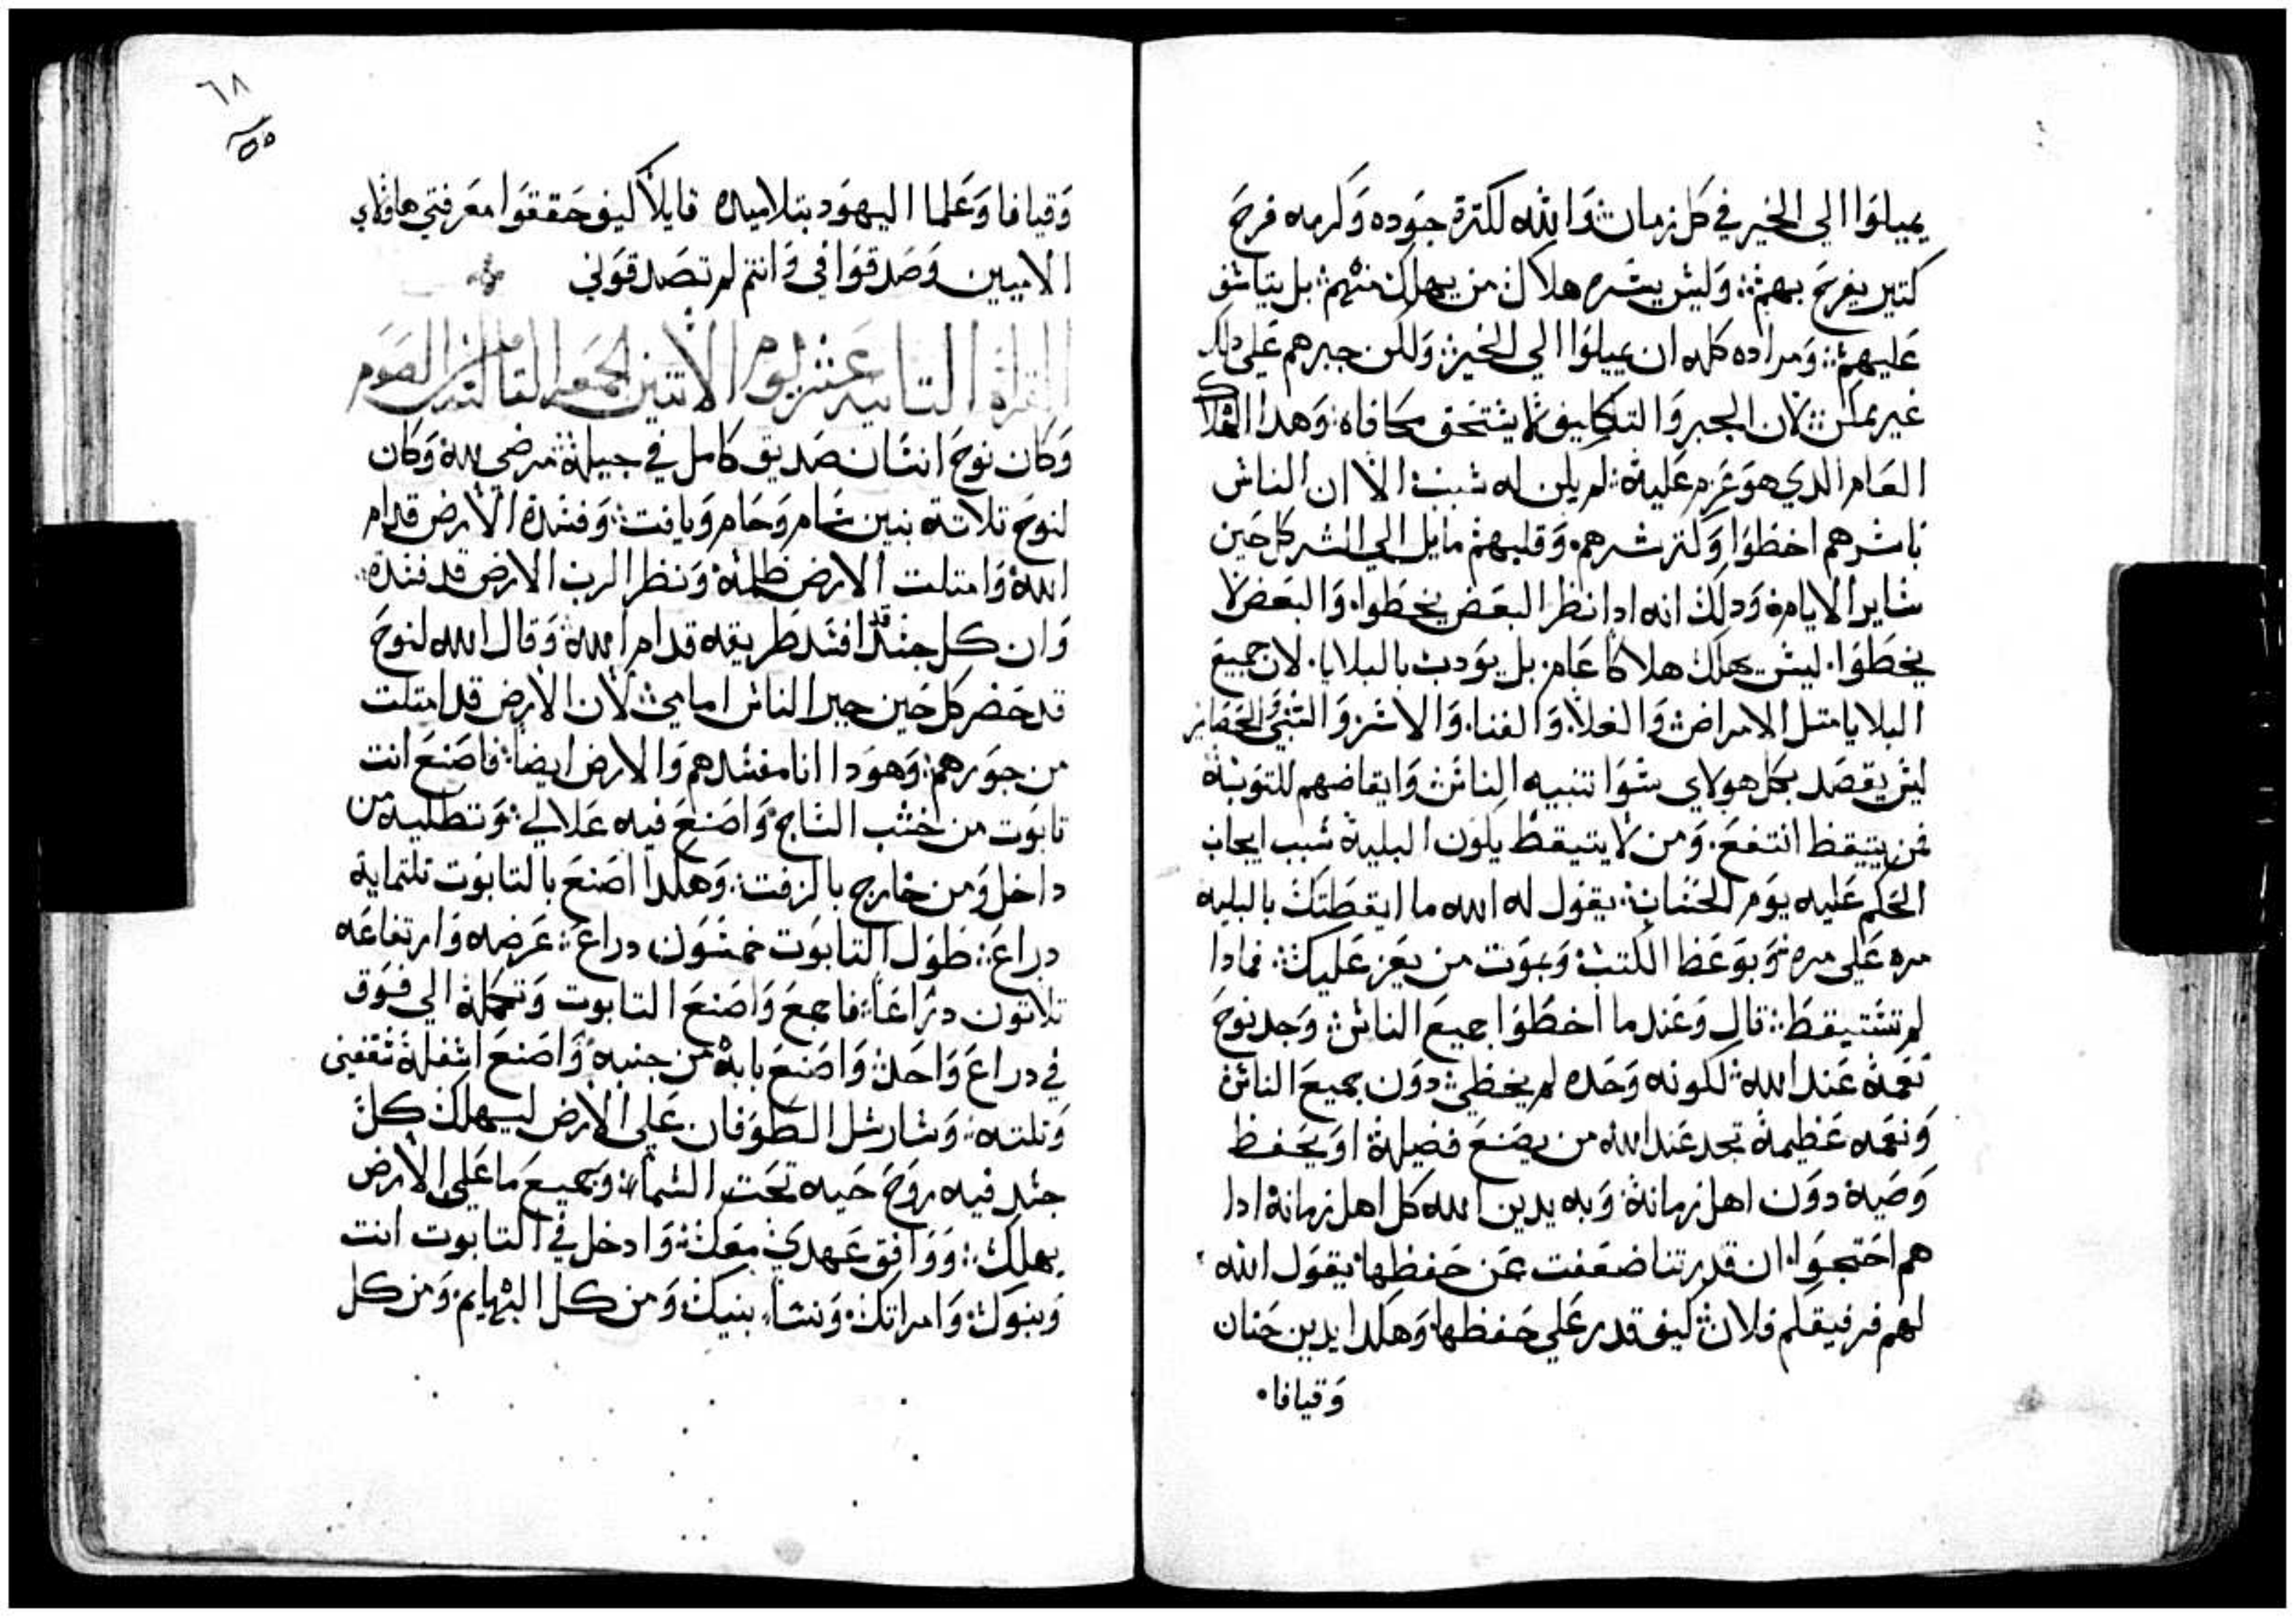 يميلوا الي الخير في كل زمان والله لكترة جوده وكرمه فرح
كتير يفرح بهم وليس يسره هلاك من يهلك منهم بل يتاسف
عليهم ومراده كله ان يميلوا الي الخير ولكن جبرهم علي دلك
غير ممكن لان الجبر والتكليف لا يستحق مكافاه وهدا الهلاك
العام الدي هو عزم عليه لم يكن له سبب الا ان الناس
باسرهم اخطوا وكتر شرهم وقلبهم مايل الي الشر كل حين
ساير الايام ودلك انه ادا نظر البعض يخطوا والبعض لا
يخطوا ليس يهلك هلاكا عام بل يودب بالبلايا لان جميع
البلايا متل الامراض والغلا والفنا والاسر والسبي
ليس يقصد بكل هولاي سوا تنبيه الناس وايقاضهم للتوبة
فمن يتيقظ انتفع ومن لا يتيقظ يكون البلية سبب ايجاب
الحكم عليه يوم الحساب يقول له الله ما ايقظتك بالبليه
مره علي مره وبوعظ الكتب وبموت من يعز عليك فمادا
لم تستيقظ قال وعندما اخطوا جميع الناس وجد نوح
نعمة عند الله لكونه وحده لم يخطي دون جميع الناس
ونعمه عظيمة تجد عند الله من يصنع فضيلة او يحفظ
وصية دون اهل زمانة وبه يدين الله كل اهل زمانة ادا
هم احتجوا ان قدرتنا ضعفت عن حفظها يقول الله
لهم فرفيقكم فلان كيف قدر علي حفظها وهكدا يدين حنان
وقيافا
٦٨
٥٥
وقيافا وعلما اليهود بتلاميده قايلا كيف حققوا معرفتي هاولاي
الاميين وصدقوا في وانتم لم تصدقوني
القراة التانية عشر يوم الاتنين الجمعة التالتة من الصوم
وكان نوح انسان صديق كامل في جيلة مرضي لله وكان
لنوح تلاتة بنين سام وحام ويافت وفسدة الارض قدام
الله وامتلت الارض ظلمة ونظر الرب الارض قد فسدة
وان كل جسد قد افسد طريقه قدام الله وقال الله لنوح
قد حضر كل حين جير الناس امامي لان الارض قد امتلت
من جورهم وهودا انا مفسدهم والارض ايضا فاصنع انت
تابوت من خشب الساج واصنع فيه علالي وتطليه من
داخل ومن خارج بالزفت وهكدا اصنع بالتابوت تلتماية
دراع طول التابوت خمسون دراع عرضه وارتفاعه
تلاتون دراعا فاجمع واصنع التابوت وتحمله الي فوق
في دراع واحد واصنع بابة من جنبه واصنع اسفلة سقفين
وتلته وسارسل الطوفان علي الارض ليهلك كل
جسد فيه روح حيه تحت السماء وجميع ما علي الارض
يهلك ووافق عهدي معك وادخل في التابوت انت
وبنوك وامراتك ونساء بنيك ومن كل البهايم ومن كل